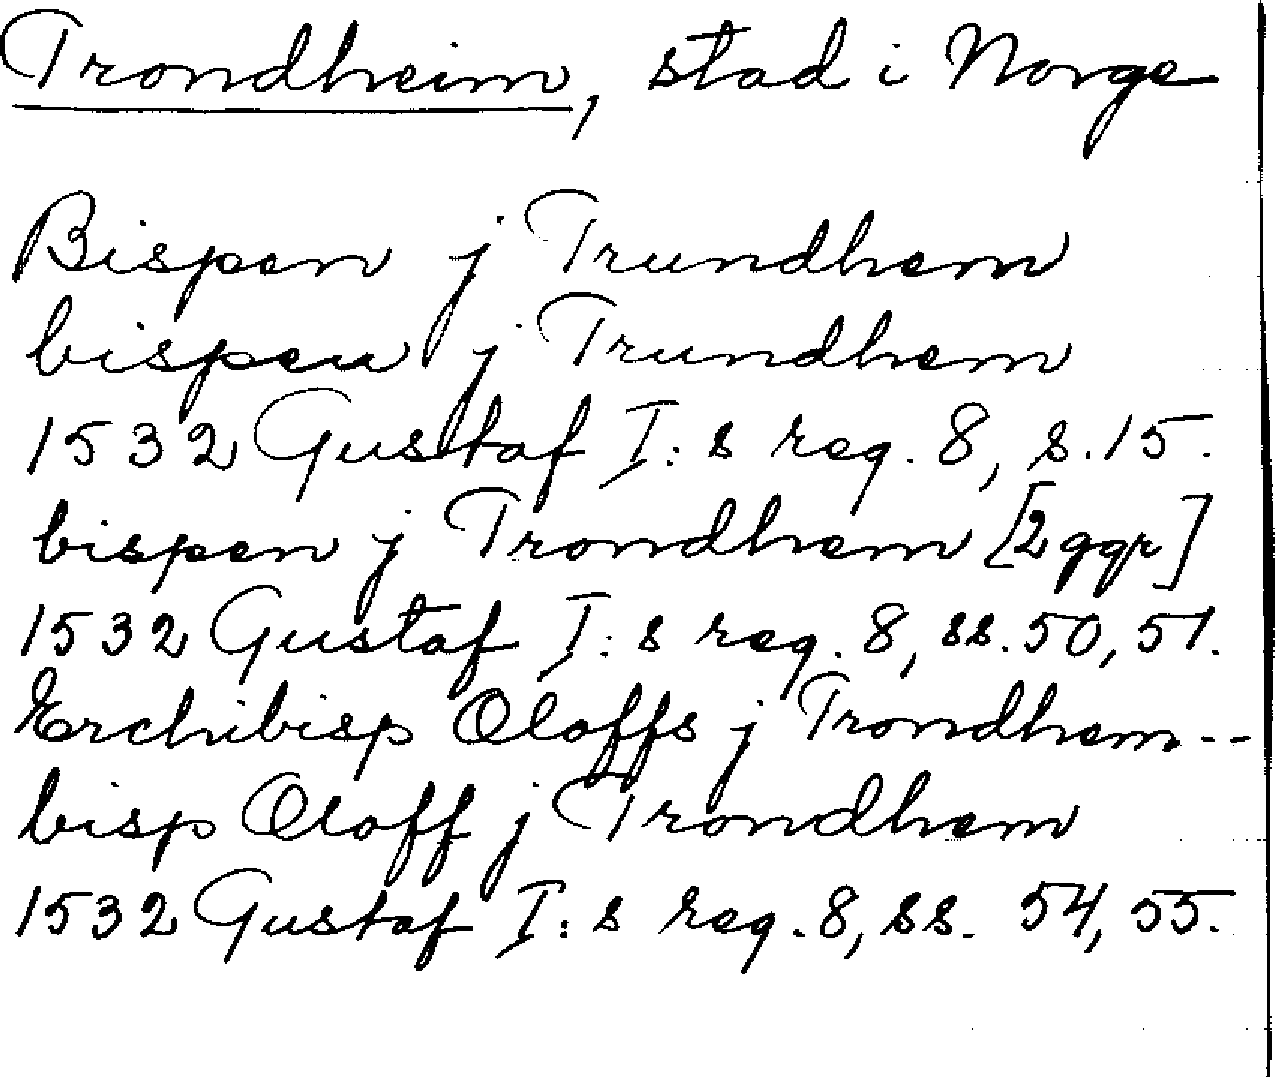 Trondheim, stad i Norge
Bispen j Trundhem
bispen j Trundhem
1532 Gustaf I:s reg. 8, s. 15.
bispen j Trondhem [2 ggr]
1532 Gustaf I:s reg. 8, ss. 50, 51.
Erchibisp Oloffs j Trondhem --
bisp Oloff j Trondhem
1532 Gustaf I:s reg. 8, ss. 54, 55.